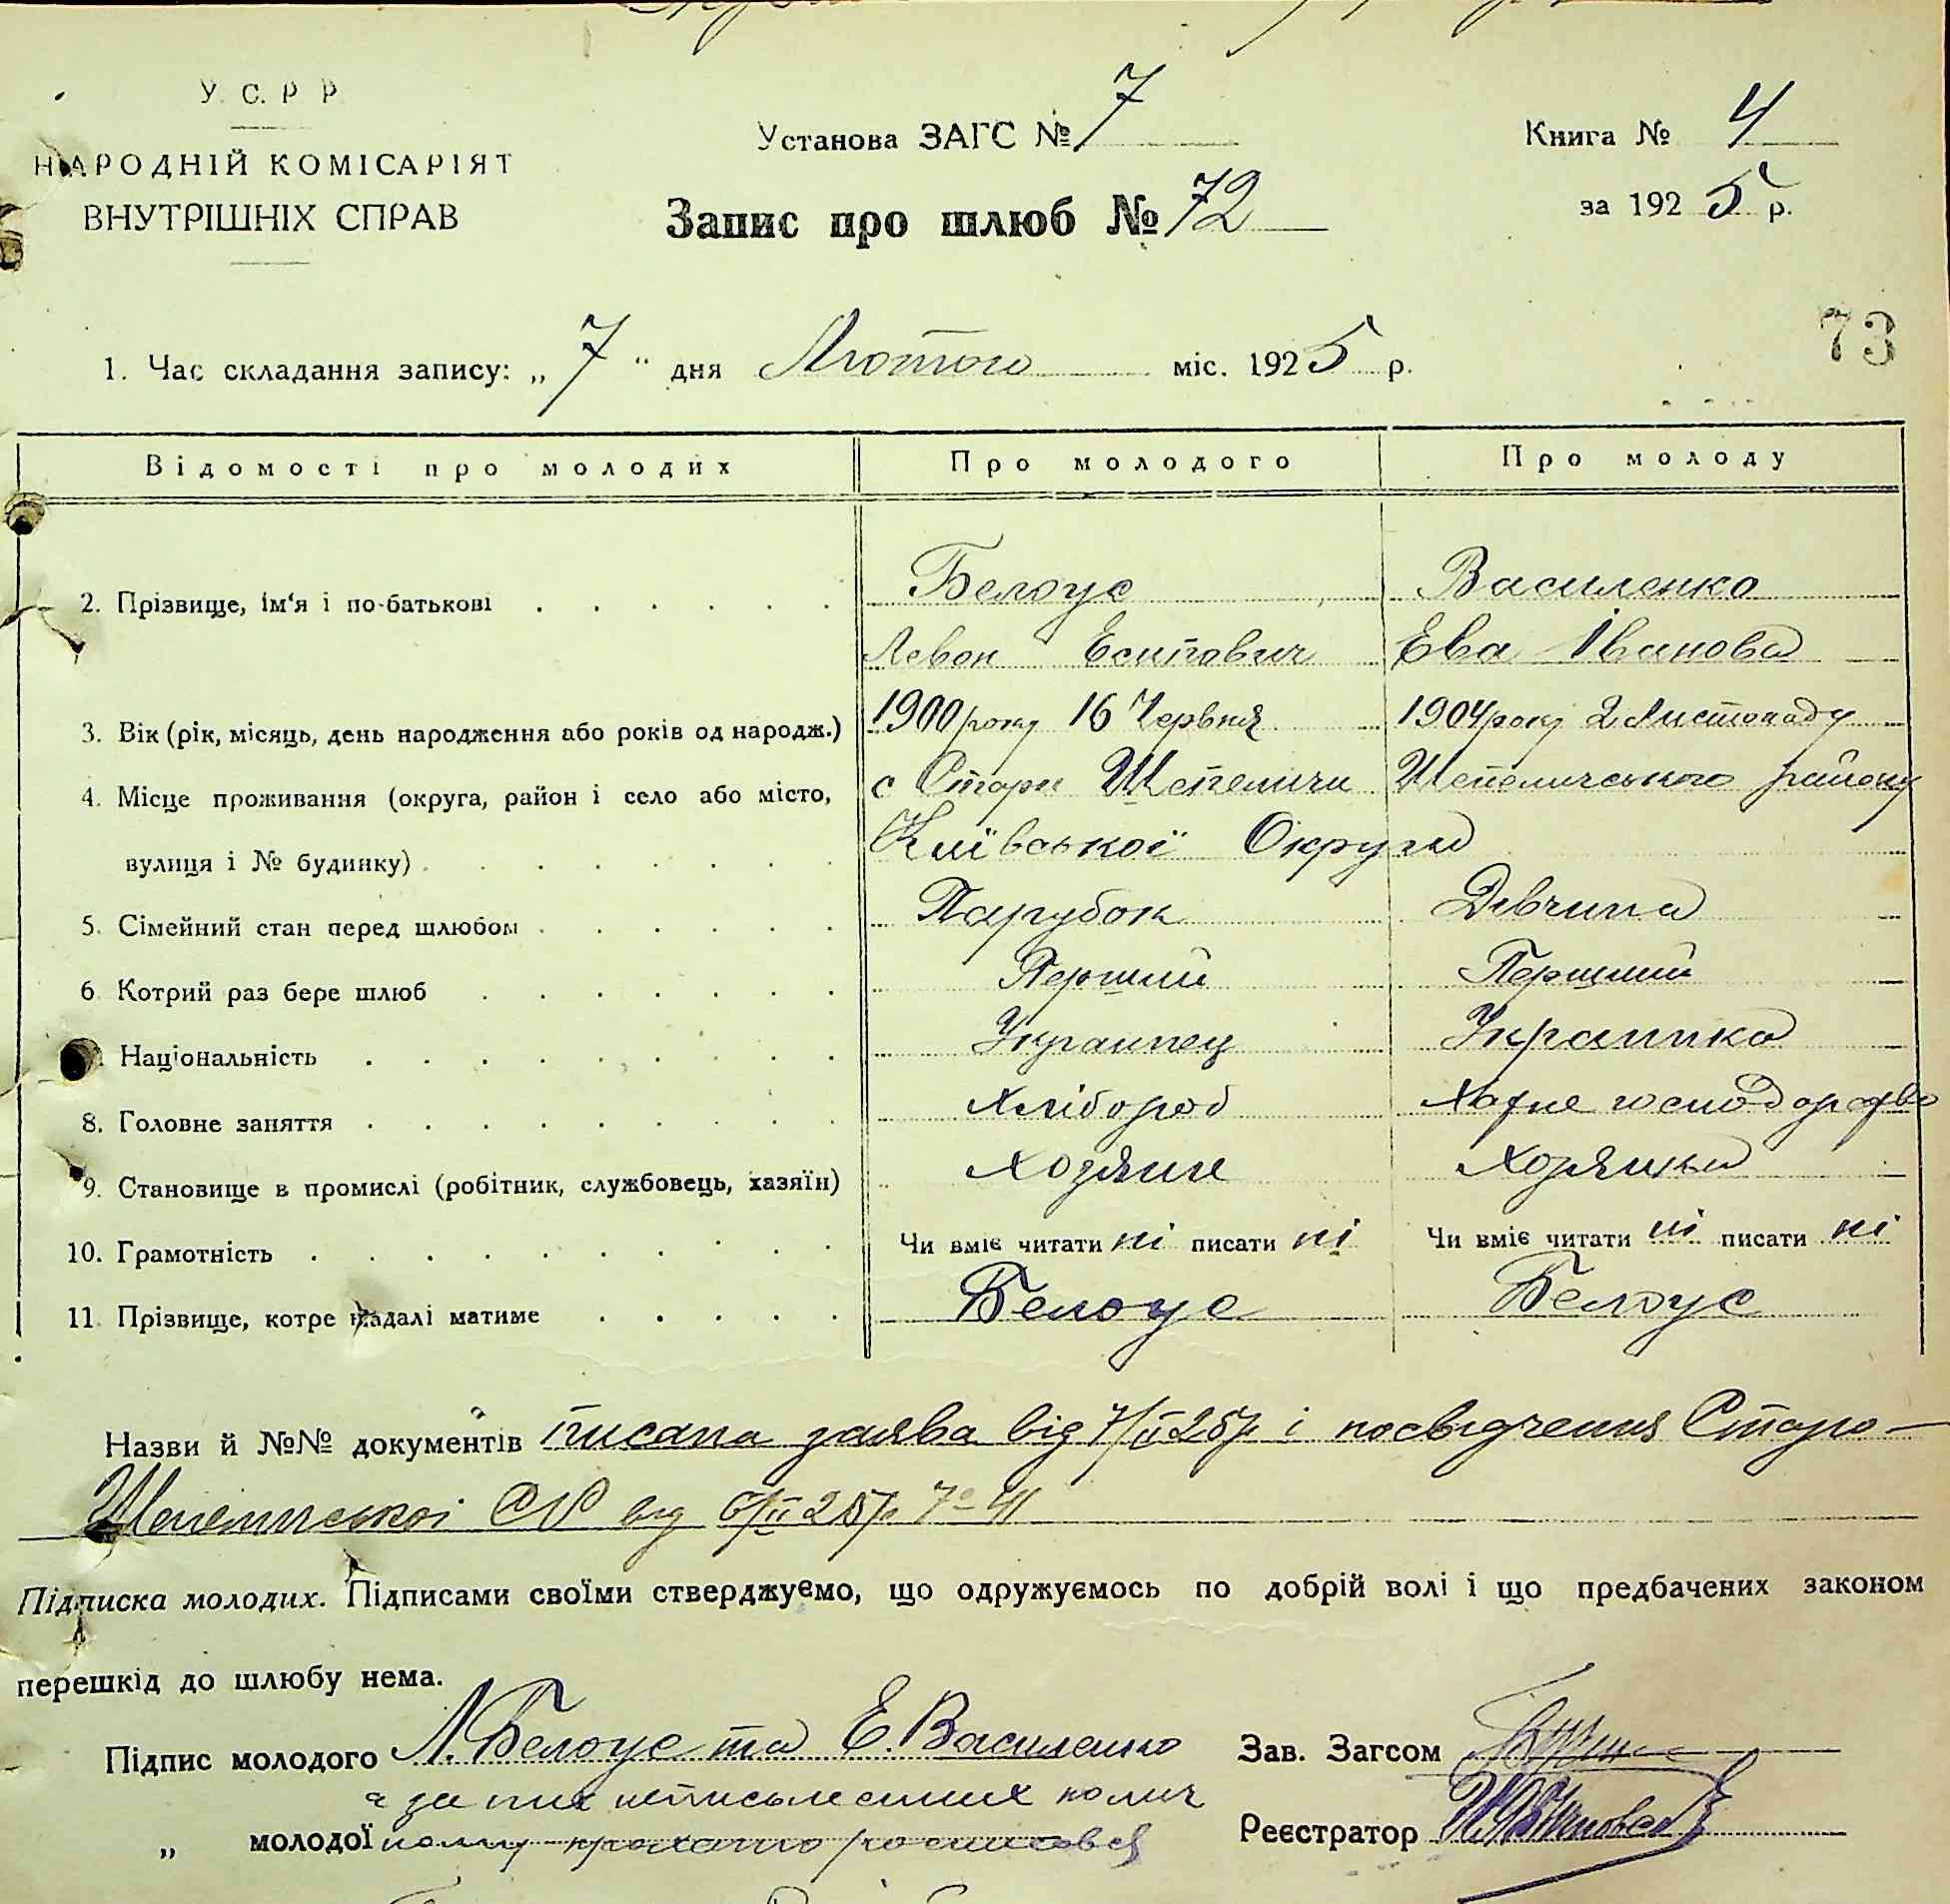 У. С. Р Р
НАРОДНІЙ КОМІСАРІЯТ
ВНУТРІШНІХ СПРАВ
Установа ЗАГС № 7
Запис про шлюб № 72
Книга № 4
за 1925 р.
73
1. Час складання запису: „7" дня Лютого міс. 1925 р.
Відомості про молодих Про молодого Про молоду
2. Прізвище, ім'я і по-батькові Белоус Василенко
Левон Есипович Ева Іванова
3. Вік (рік, місяць, день народження або років од народж.) 1900 року 16 Червня 1904 року 2 Листопаду
4. Місце проживання (округа, район і село або місто, с Стари Шепеличи Шепеличського району
вулиця і № будинку) Київської Округи
5. Сімейний стан перед шлюбом Парубок Дівчина
6. Котрий раз бере шлюб Перший Перший
Національність Украинец Украинка
8. Головне заняття Хлібороб Хатне господарство
9. Становище в промислі (робітник, службовець, хазяїн) Хозяин Хозяйка
10. Грамотність Чи вміє читати ні писати ні Чи вміє читати ні писати ні
11. Прізвище, котре надалі матиме Белоус Белоус
Назви й №№ документів писана заява від 7/II 25р і посвідчения Старо-
Шепелиської СР від 6/II 25р № 41
Підписка молодих. Підписами своїми стверджуємо, що одружуємось по добрій волі і що предбачених законом
перешкід до шлюбу нема.
Підпис молодого Л. Белоус та Е. Василенко
а за них неписьменних
„ молодої росписався
Зав. Загсом
Реєстратор